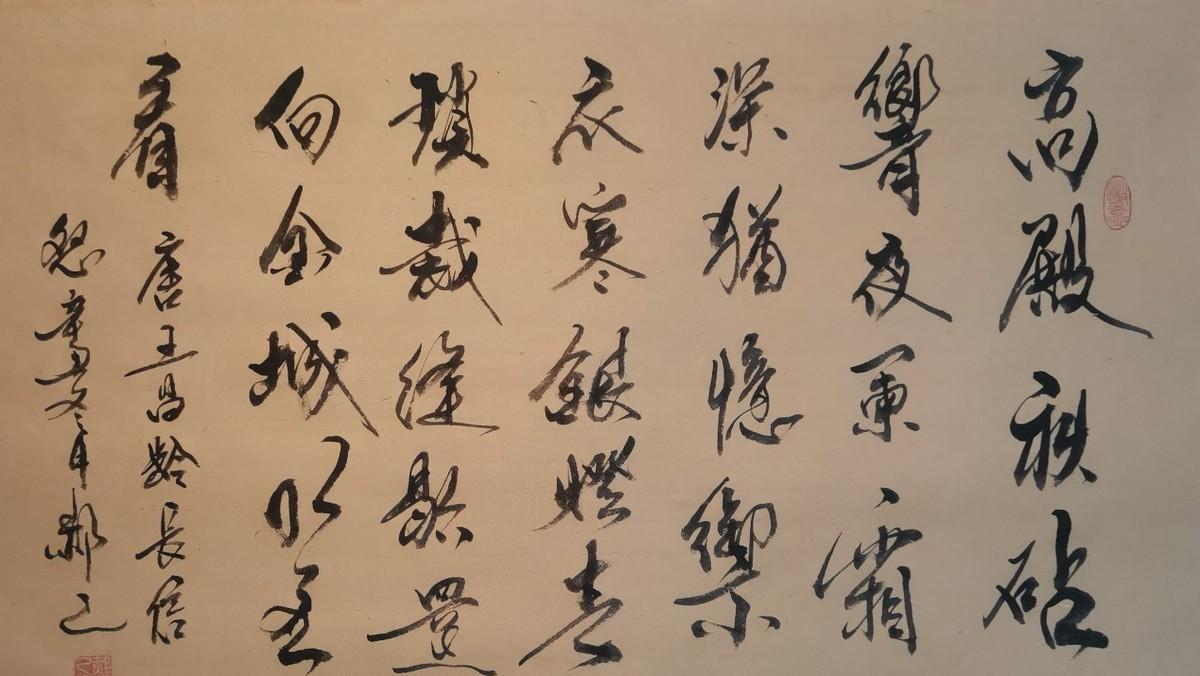 高殿秋砧
響夜闌霜
深猶憶御
衣寒銀燈青
瑣裁縫歇還
向金城明主
看 唐王昌齡長信
怨 辛丑冬月郝